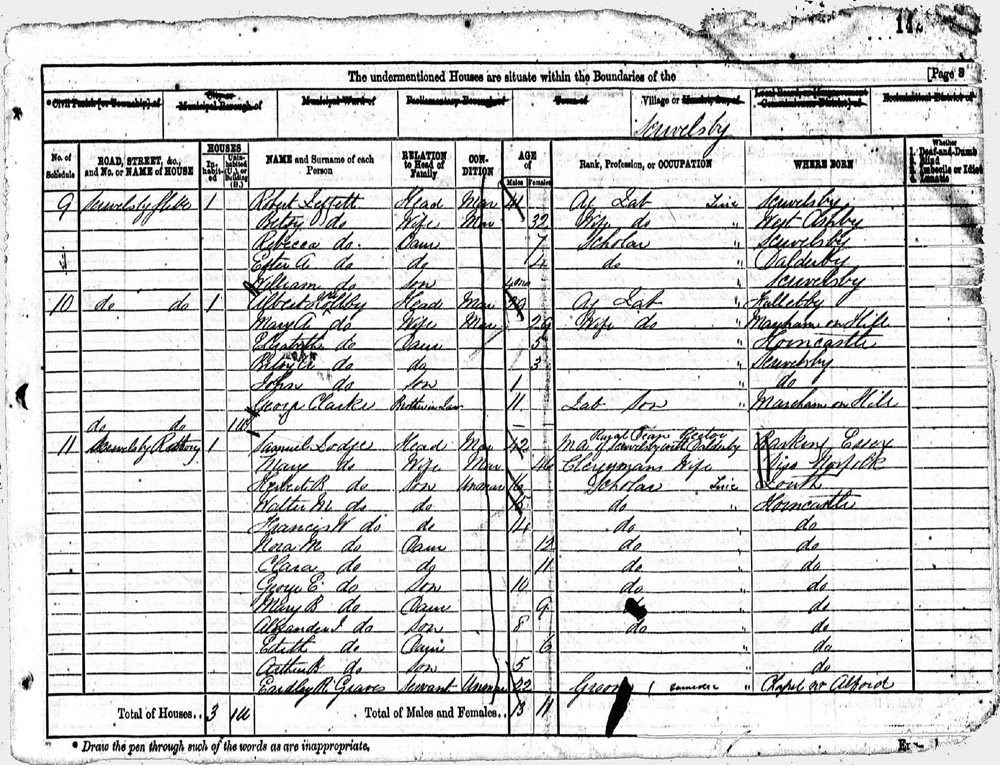 142
The undermentioned Houses are situate within the Boundaries of the [Page 3
*Civil Parish [or Township] of City or Municipal Borough of Municipal Ward of Parliamentary Borough of Town of Village or Hamlet, &c., of Local Board, or [Improvement Commissioners District] of Ecclesiastical District of
Scrivelsby
No. of Schedule ROAD, STREET, &c., and No. or NAME of HOUSE HOUSES Inhabited Uninhabited (U.) or Building (B.) NAME and Surname of each Person RELATION to Head of Family CONDITION AGE of Males Females Rank, Profession, or OCCUPATION WHERE BORN Whether 1. Deaf-and-Dumb 2. Blind 3. Imbecile or Idiot 4. Lunatic
9 Scrivelsby 1 Robert Head Mar 41 Ag Lab Scrivelsby
Betsy do Wife Mar 32 Wife do West Ashby
Rebecca do Daur 7 Scholar Scrivelsby
Ester A do do 4 do Dalderby
William do Son 4mo Scrivelsby
10 do do 1 Albert Head Mar 29 Ag Lab
Mary A do Wife Mar 29 Wife do Mareham on Hill
Elizabeth do Daur 5 Horncastle
Betsy A do do 3 Scrivelsby
John do Son 1 do
George Clarke Brother in Law 11 Lab Son Mareham on Hill
do do 1U
11 Scrivelsby Rectory 1 Samuel Lodge Head Mar 42 M A Rural Dean Rector Scrivelsby with Dalderby Barking Essex
Mary do Wife Mar 40 Clergymans Wife Diss Norfolk
Herbert B do Son Unmar 16 Scholar Louth
Walter M do do 15 do Horncastle
Francis W do do 14 do do
Nora M do Daur 12 do do
Clara do do 11 do do
George E do Son 10 do do
Mary B do Daur 9 do
Alexander J do Son 8 do do
Edith do Daur 6 do
Arthur B do Son 5 do
Eardley R Graves Servant Unmar 22 Groom Chapel nr Alford
Total of Houses.. 3 1U Total of Males and Females.. 13 11
* Draw the pen through such of the words as are inappropriate.